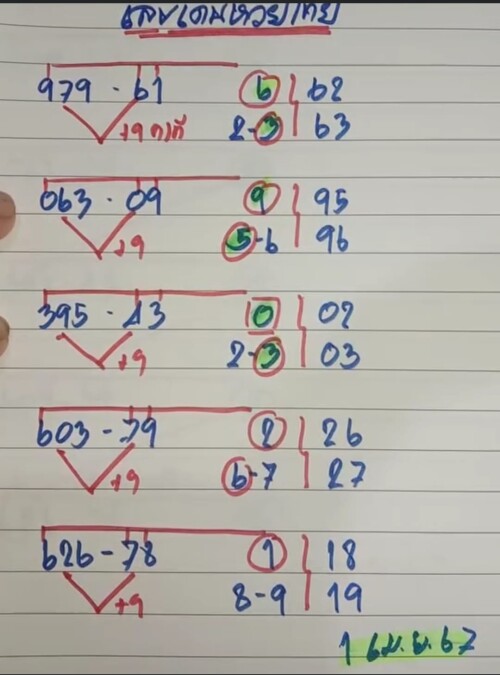 เลขเด่นหวยไทย
979 - 61 6 62
+9 คงที่ 2-3 63
063 - 09 9 95
+9 5-6 96
395 - 43 0 02
+9 2-3 03
603 - 79 2 26
+9 6-7 27
626 - 78 1 18
+9 8-9 19
1 เม.ย. 67